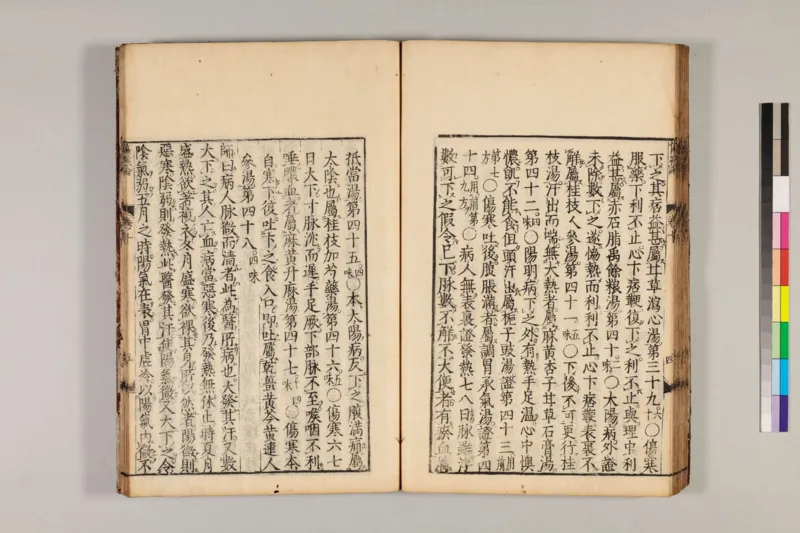 下之其痞益甚屬甘草瀉心湯第三十九六味○傷寒
服藥下利不止心下痞鞕復下之利不止與理中利
益甚屬赤石脂禹餘粮湯第四十二味○太陽病外證
未除數下之遂恊熱而利利不止心下痞鞕表裏不
解屬桂枝人參湯第四十一五味○下後不可更行桂
枝湯汗出而喘無大熱者屬麻黄杏子甘草石膏湯
第四十二四味○陽明病下之外有熱手足温心中懊
憹飢不能食但頭汗出屬梔子豉湯證第四十三用前
第七方○傷寒吐後腹脹滿者屬調胃承氣湯證第四
十四用前第九方○病人無表裏證發熱七八日脉雖浮
數可下之假令已下脉數不解不大便者有瘀血屬
抵當湯第四十五四味○本太陽病反下之腹滿痛屬
太陰也屬桂枝加芍藥湯第四十六五味○傷寒六七
日大下寸脉沈而遲手足厥下部脉不至喉咽不利
唾膿血者屬麻黄升麻湯第四十七十四味○傷寒本
自寒下復吐下之食入口即吐屬乾薑黄芩黄連人
參湯第四十八四味
師曰病人脉微而濇者此爲醫所病也大發其汗又數
大下之其人亡血病當惡寒後乃發熱無休止時夏月
盛熱欲著複衣冬月盛寒欲裸其身所以然者陽微則
惡寒陰弱則發熱此醫發其汗使陽氣微又大下之令
陰氣弱五月之時陽氣在表胃中虛冷以陽氣内微不